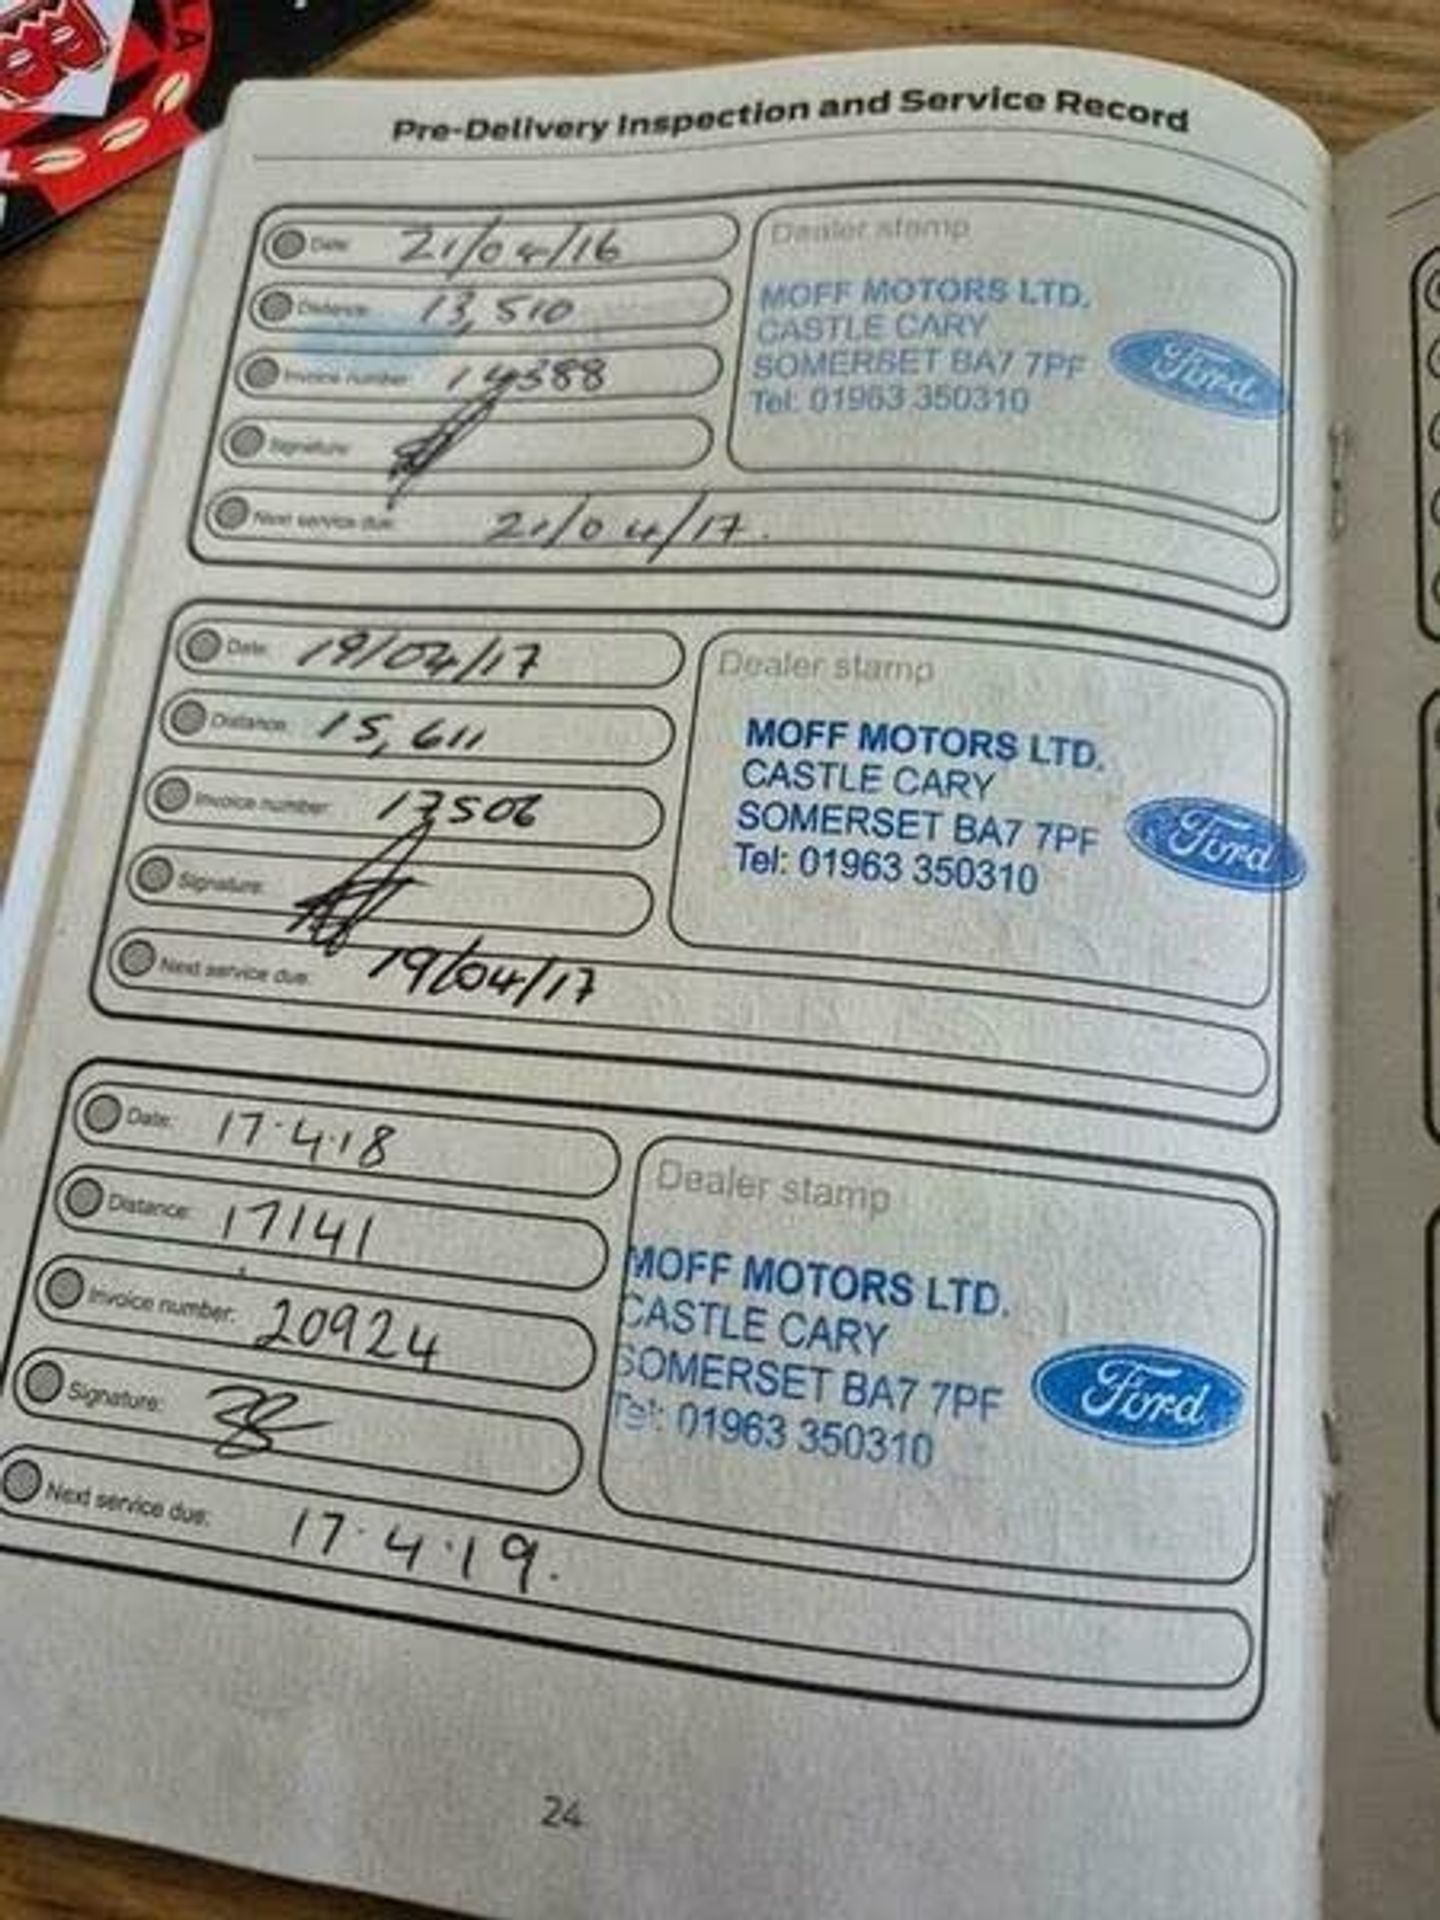 Pre-Delivery Inspection and Service Record
Date: 21/04/16
Distance: 13,510
Invoice number: 14388
Signature:
Next service due: 21/04/17.
Dealer stamp
MOFF MOTORS LTD.
CASTLE CARY
SOMERSET BA7 7PF
Tel: 01963 350310
Ford
Date: 19/04/17
Distance: 15,611
Invoice number: 17506
Signature:
Next service due: 19/04/17
Dealer stamp
MOFF MOTORS LTD.
CASTLE CARY
SOMERSET BA7 7PF
Tel: 01963 350310
Ford
Date: 17.4.18
Distance: 17141
Invoice number: 20924
Signature:
Next service due: 17.4.19.
Dealer stamp
MOFF MOTORS LTD.
CASTLE CARY
SOMERSET BA7 7PF
Tel: 01963 350310
Ford
24